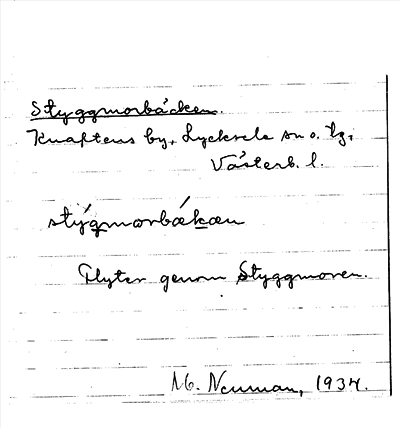 Styggmorbäcken.
Knaftens by, Lycksele sn o. tg,
Västerb. l.
stýgmorbækæn
Flyter genom Styggmoren.
M. Neuman, 1934.